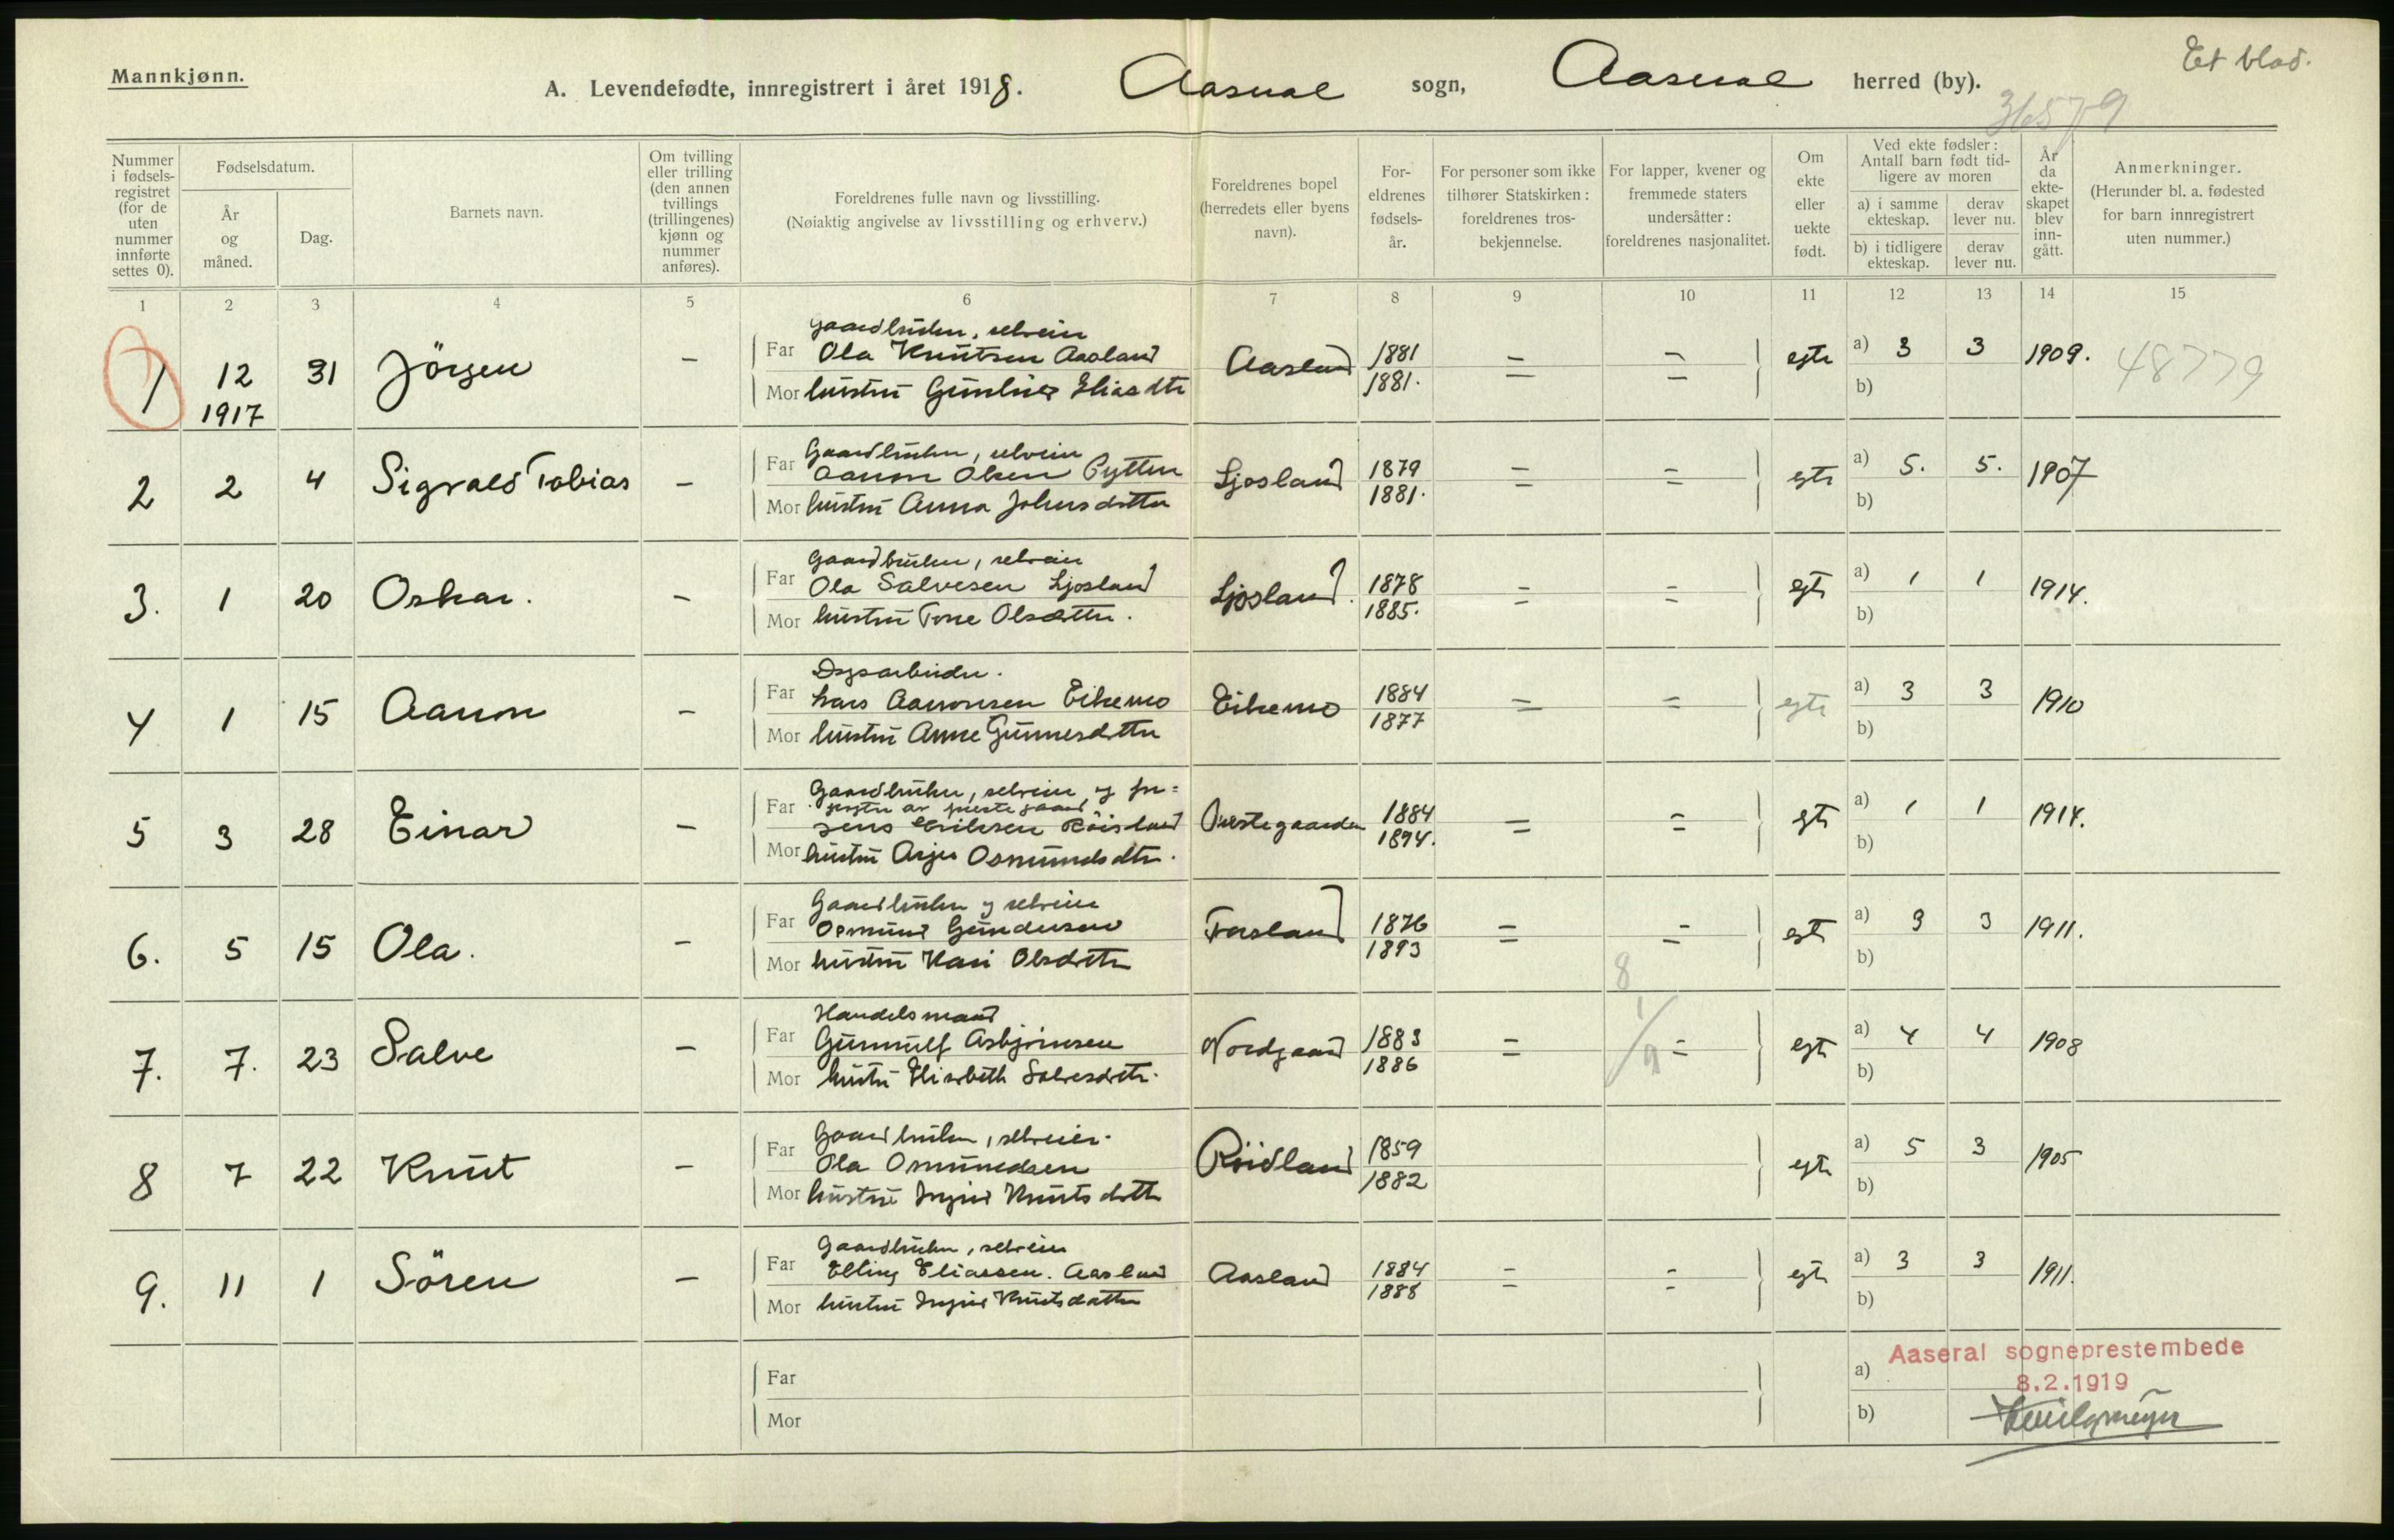 Mannkjønn.
A. Levendefødte, innregistrert i året 1918. Aaseral sogn, Aaseral herred (by).
Et blad.
36579
Nummer i fødselsregistret (for de uten nummer innførte settes 0).
Fødselsdatum.
År og måned.
Dag.
Barnets navn.
Om tvilling eller trilling (den annen tvillings (trillingenes) kjønn og nummer anføres).
Foreldrenes fulle navn og livsstilling.
(Nøiaktig angivelse av livsstilling og erhverv.)
Foreldrenes bopel (herredets eller byens navn).
Foreldrenes fødselsår.
For personer som ikke tilhører Statskirken: foreldrenes trosbekjennelse.
For lapper, kvener og fremmede staters undersåtter: foreldrenes nasjonalitet.
Om ekte eller uekte født.
Ved ekte fødsler: Antall barn født tidligere av moren
a) i samme ekteskap.
derav lever nu.
b) i tidligere ekteskap.
derav lever nu.
År da ekteskapet blev inngått.
Anmerkninger.
(Herunder bl. a. fødested for barn innregistrert uten nummer.)
1 2 3 4 5 6 7 8 9 10 11 12 13 14 15
Gaardbruker, selveier
1 12 31 Jörgen - Far Ola Knutsen Aasland Aasland 1881 = = egte a) 3 3 1909. 48779
1917 Mor hustru Gunhild Eliasdtr 1881. b)
Gaardbruker, selveier
2 2 4 Sigvald Tobias - Far Aanon Olsen Pytten Ljosland 1879 = = egte a) 5. 5. 1907
Mor hustru Anna Johnsdatter 1881. b)
Gaardbruker, selveier
3. 1 20 Oskar. - Far Ola Salvesen Ljosland Ljosland. 1878 = = egte a) 1 1 1914.
Mor hustru Tone Olsdatter. 1885. b)
Dagsarbeider.
4 1 15 Aanon - Far Lars Aanonsen Eikemo Eikemo 1884 = = egte a) 3 3 1910
Mor hustru Anne Gunnesdatter 1877 b)
Gaardbruker, selveier og for=
pagter av prestegaard
5 3 28 Einar - Far Jens Eriksen Röisland Prestegaarden 1884 = = egte a) 1 1 1914.
Mor hustru Osmundsdtr. 1894. b)
Gaardbruker og selveier
6. 5 15 Ola. - Far Osmund Gundersen Fosland 1876 = = egte a) 3 3 1911.
Mor hustru Kari Olsdatter 1893 b)
8
1/9
Handelsmand
7. 7. 23 Salve - Far Gunnulf Asbjörnsen Nordgaard 1883 = = egte a) 4 4 1908
Mor hustru Elisabeth Salvesdatter. 1886 b)
Gaardbruker, selveier.
8 7 22 Knut - Far Ola Osmundsen Röidland 1859 egte a) 5 3 1905
Mor hustru Ingrid Knutsdatter 1882 b)
Gaardbruker, selveier
9. 11 1 Sören - Far Elling Eliassen. Aasland Aasland 1884 = = egte a) 3 3 1911.
Mor hustru Ingrid Knutsdatter 1888 b)
Far a)
Mor b)
Aaseral sogneprestembede
8.2.1919